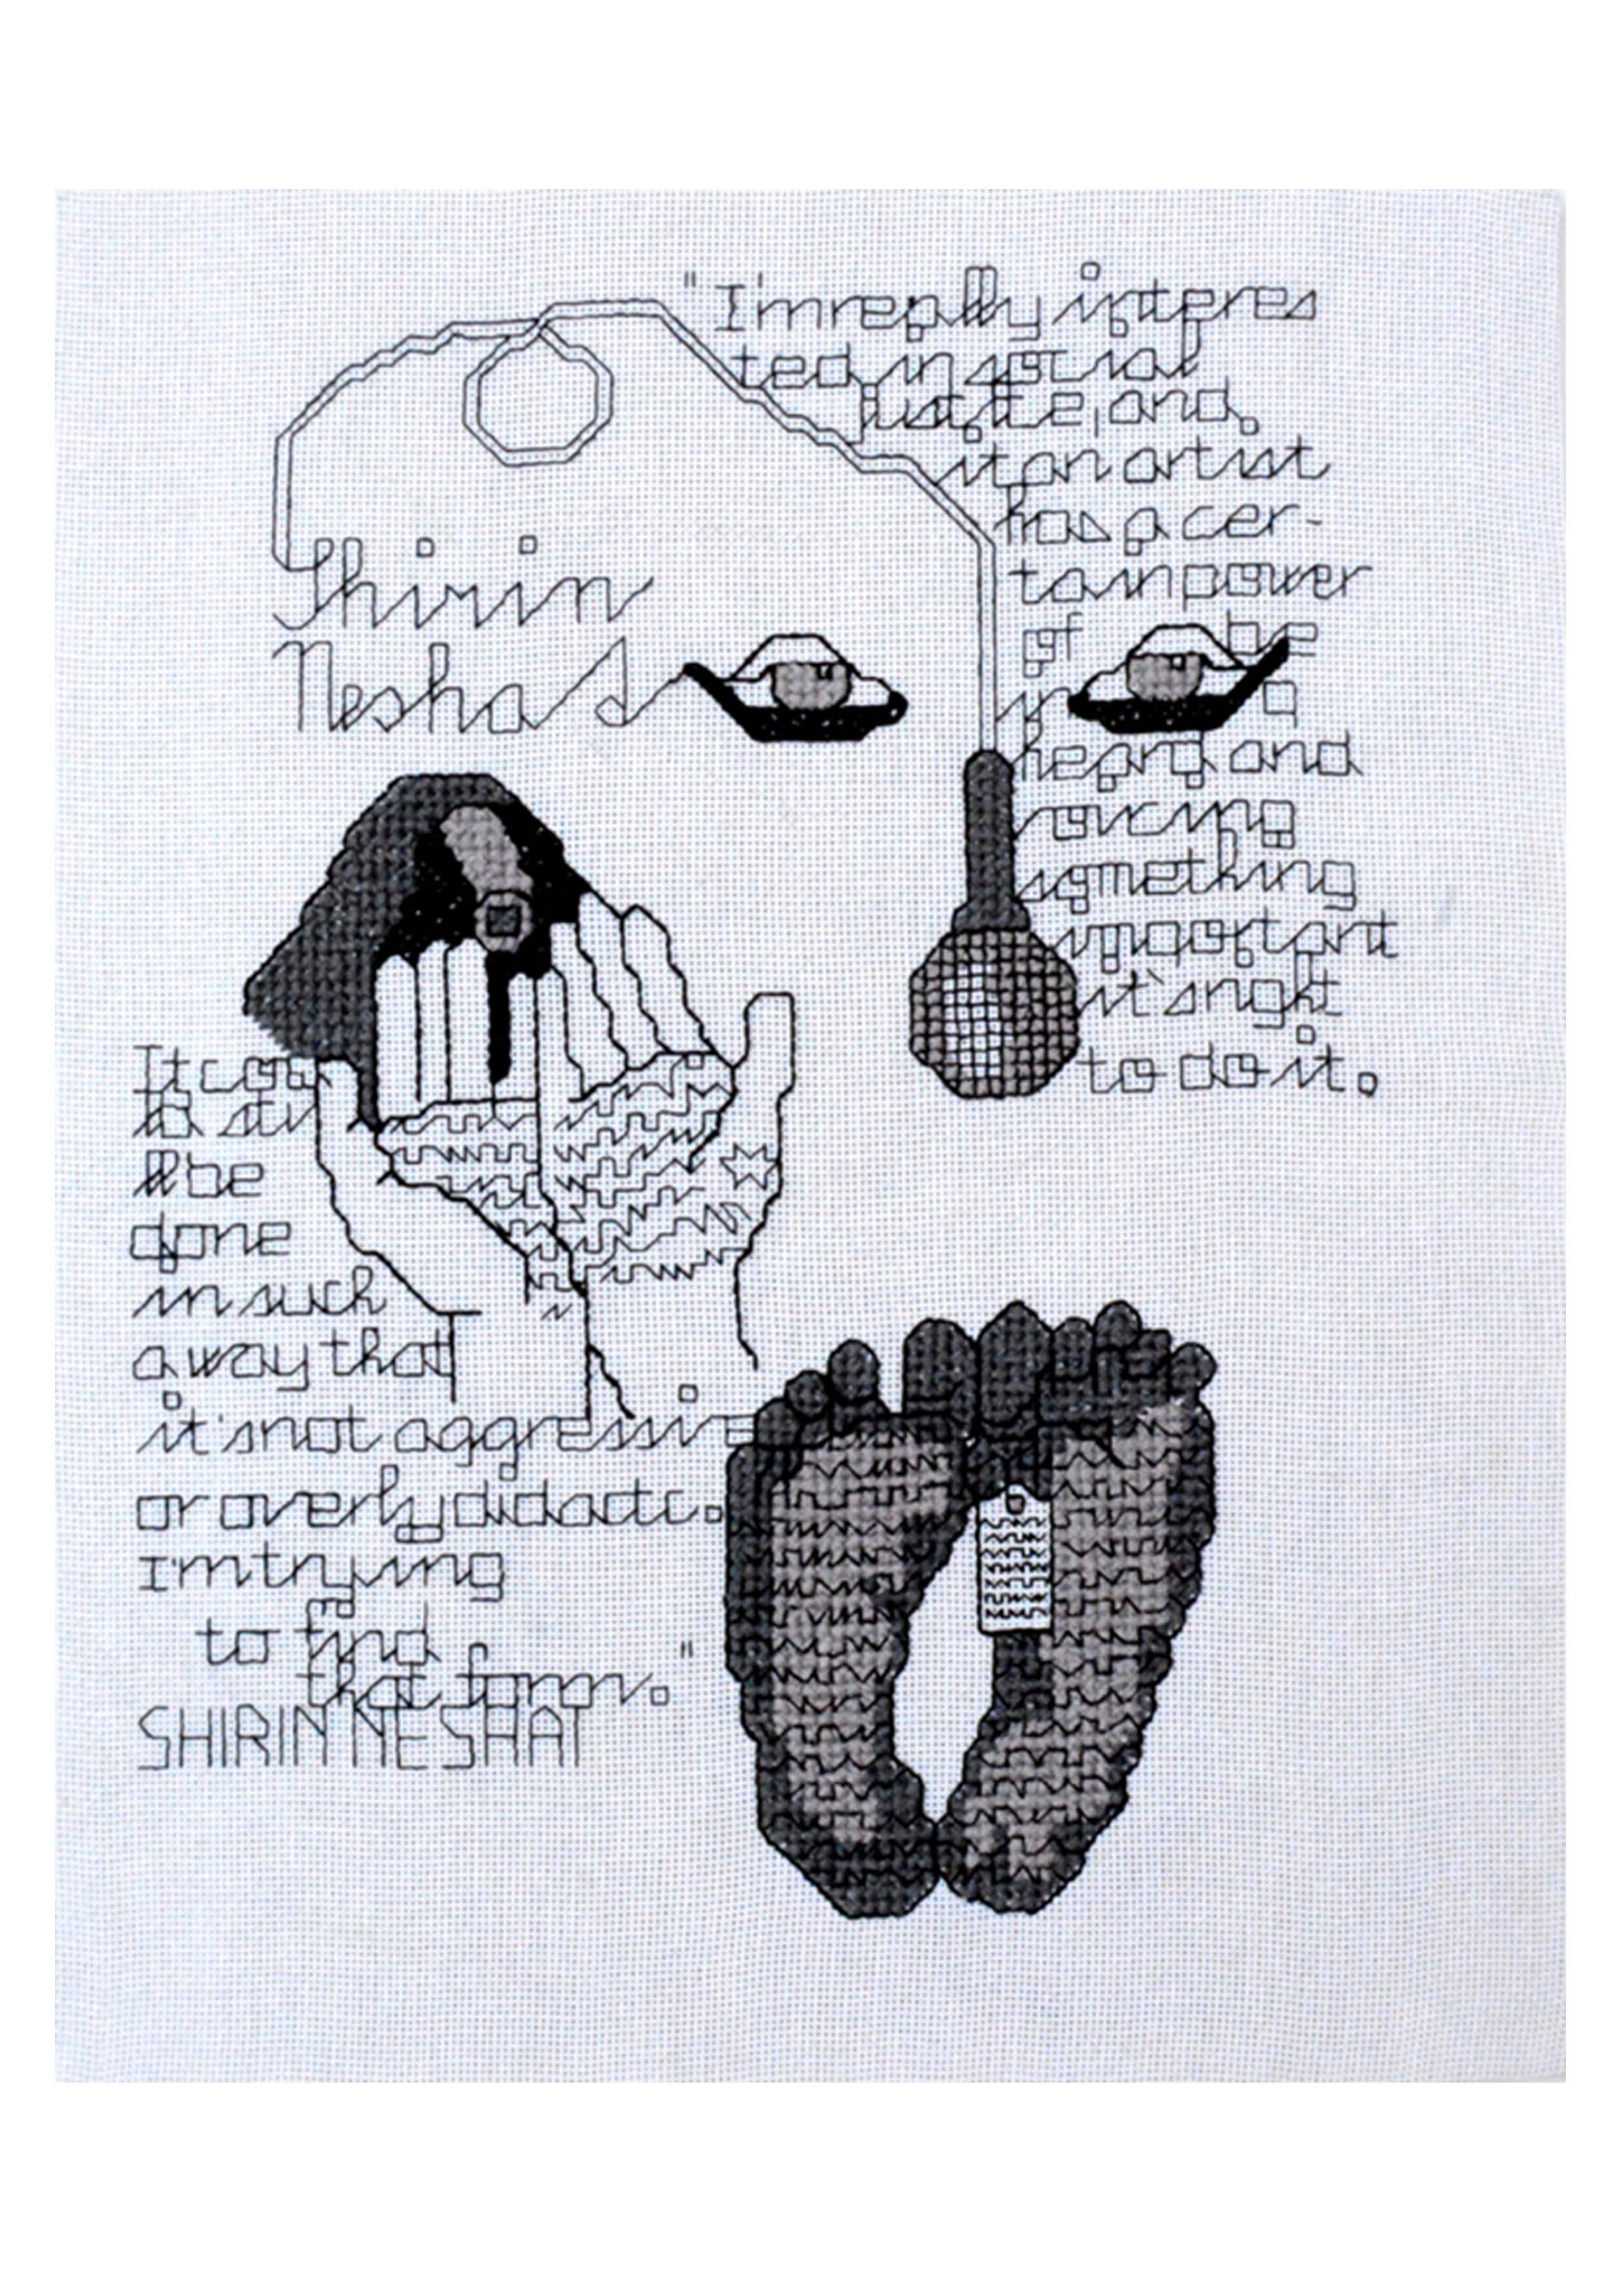 "I'm really interes
ted in social
justice, and
if an artist
has a cer-
tain power
of be
in g
heard and
voicing
something
important
it's right
to do it.
Shirin
Neshat
It cou
ld sti
ll be
done
in such
a way that
it's not aggressive
or overly didactic.
I'm trying
to find
that form."
SHIRIN NESHAT